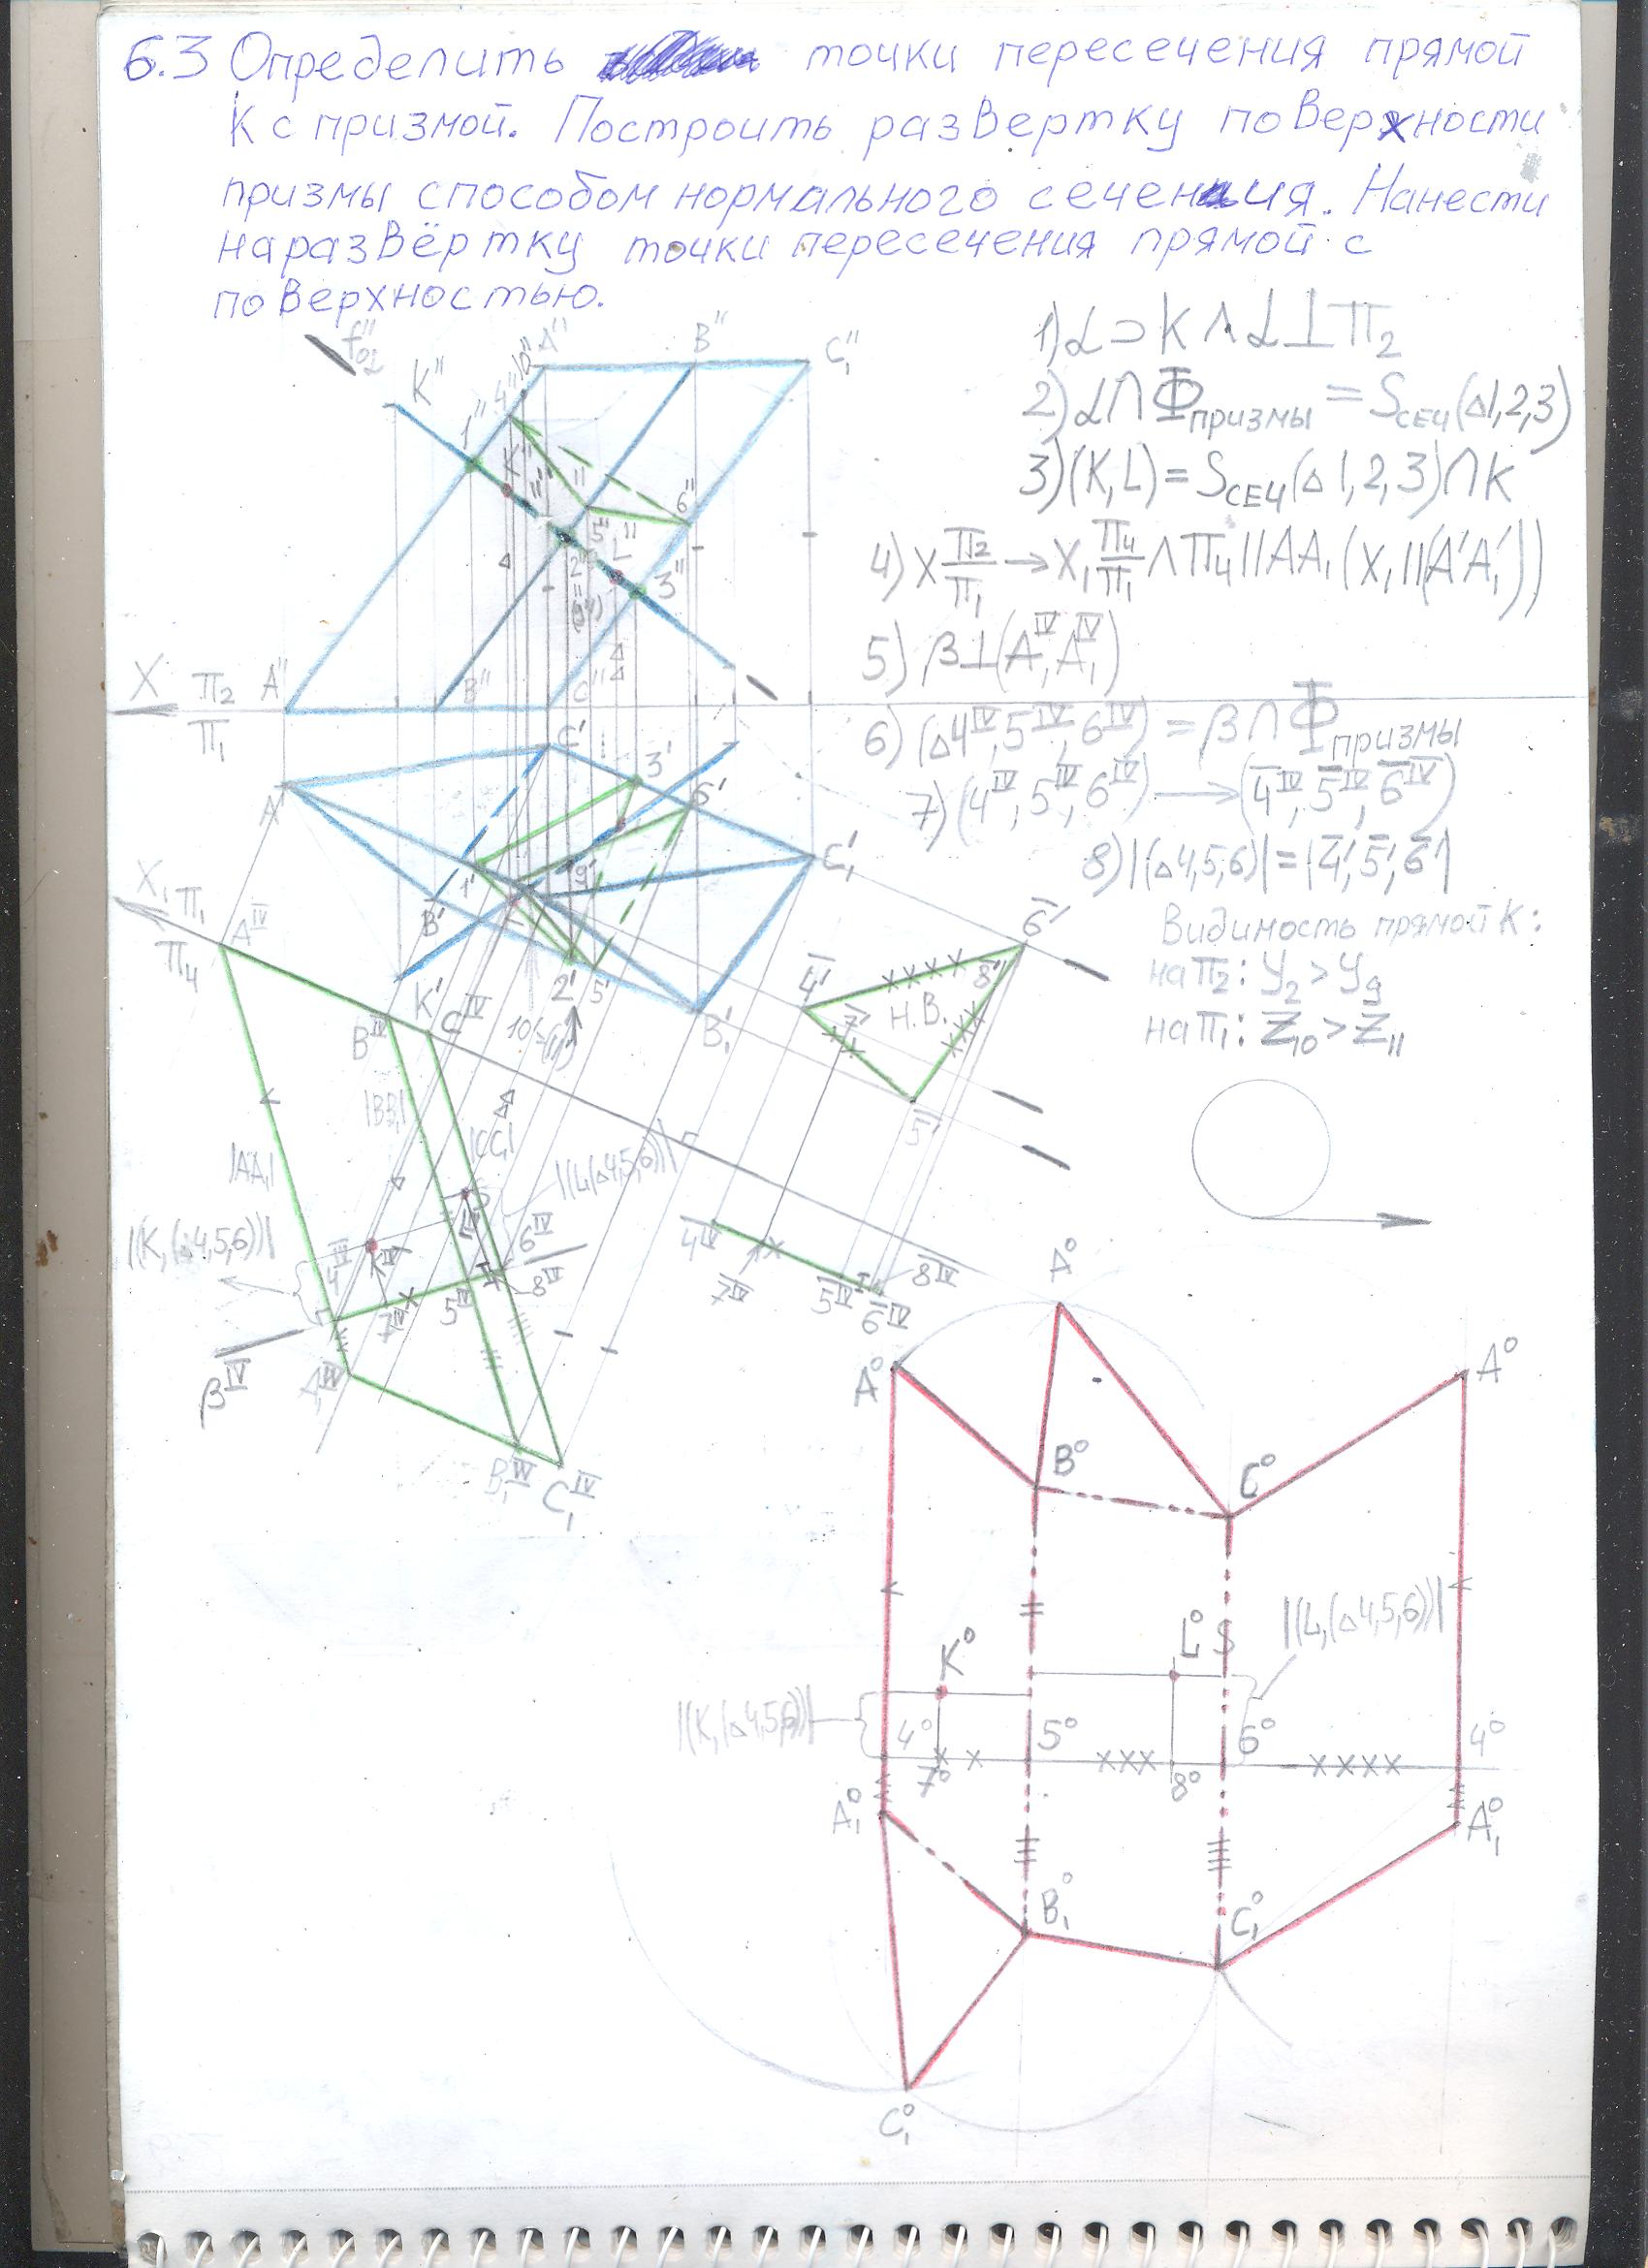 6.3 Определить точки пересечения прямой
K с призмой. Построить развертку поверхности
призмы способом нормального сечения. Нанести
на развёртку точки пересечения прямой с
поверхностью.
1) α⊃K ∧ α⊥П₂
2) α∩Φпризмы = Sсеч(△1,2,3)
3) (K,L) = Sсеч(△1,2,3)∩K
4) X П₂/П₁ → X₁ П₄/П₁ ∧ П₄ || AA₁ (X₁ || (A'A₁'))
5) β⊥(A^IV, A₁^IV)
6) (△4^IV, 5^IV, 6^IV) = β∩Φпризмы
7) (4^IV, 5^IV, 6^IV) → (4̅^IV, 5̅^IV, 6̅^IV)
8) |(△4,5,6)| = |4̅', 5̅', 6̅'|
Видимость прямой K:
на П₂: y₂ > y₉
на П₁: Z₁₀ > Z₁₁
K"
A"
B"
C₁"
1"
4"
10"
K"
5"
6"
2"
(9")
L"
3"
X П₂/П₁
A"
B"
C"
A'
C'
3'
6'
C₁'
1'
9'
B'
2'
5'
K'
10'≡(11')
B₁'
X₁ П₁/П₄
A^IV
B^IV
C^IV
4̅'
7̅'
Н.В.
8̅'
6̅'
5̅'
|AA₁|
|BB₁|
|CC₁|
|(L,(△4,5,6))|
|(K,(△4,5,6))|
4^IV
K^IV
L^IV
6^IV
7^IV
5^IV
8^IV
β^IV
A₁^IV
B₁^IV
C₁^IV
4̅^IV
7̅^IV
5̅^IV
6̅^IV
8̅^IV
A⁰
A⁰
A⁰
B⁰
C⁰
K⁰
L⁰
|(L,(△4,5,6))|
|(K,(△4,5,6))|
4⁰
5⁰
6⁰
4⁰
7⁰
8⁰
A₁⁰
B₁⁰
C₁⁰
A₁⁰
C₁⁰